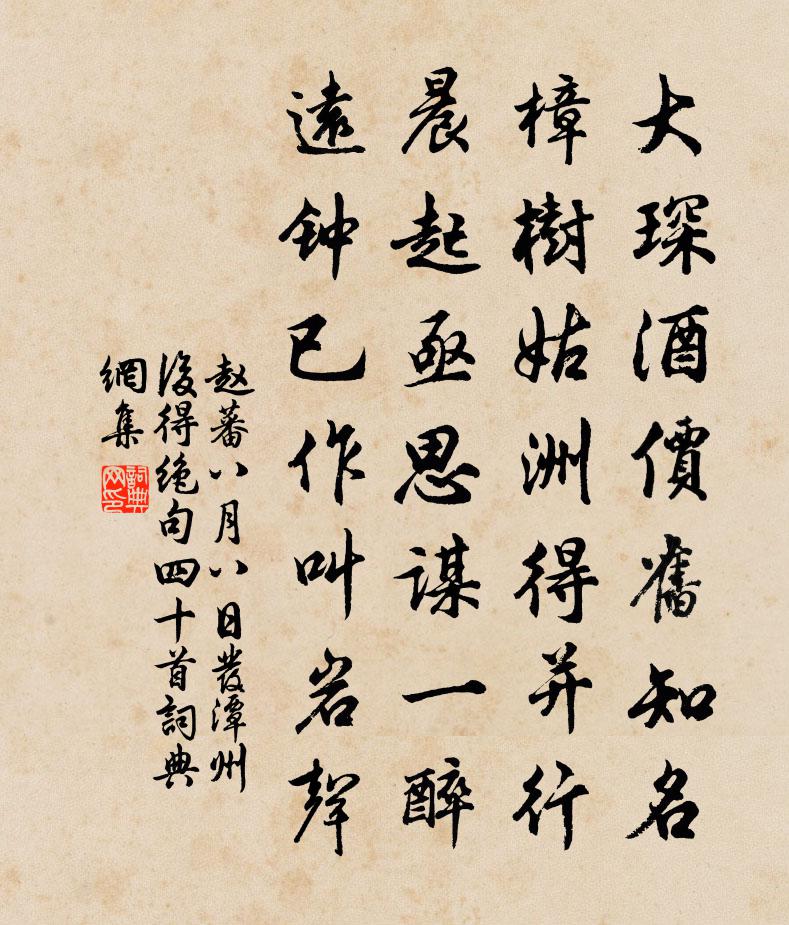 大琛酒價舊知名
樟樹姑洲得并行
晨起亟思謀一醉
遠钟已作叫岩聲
赵蕃八月八日發潭州
後得绝句四十首詞典
網集
詞典网印